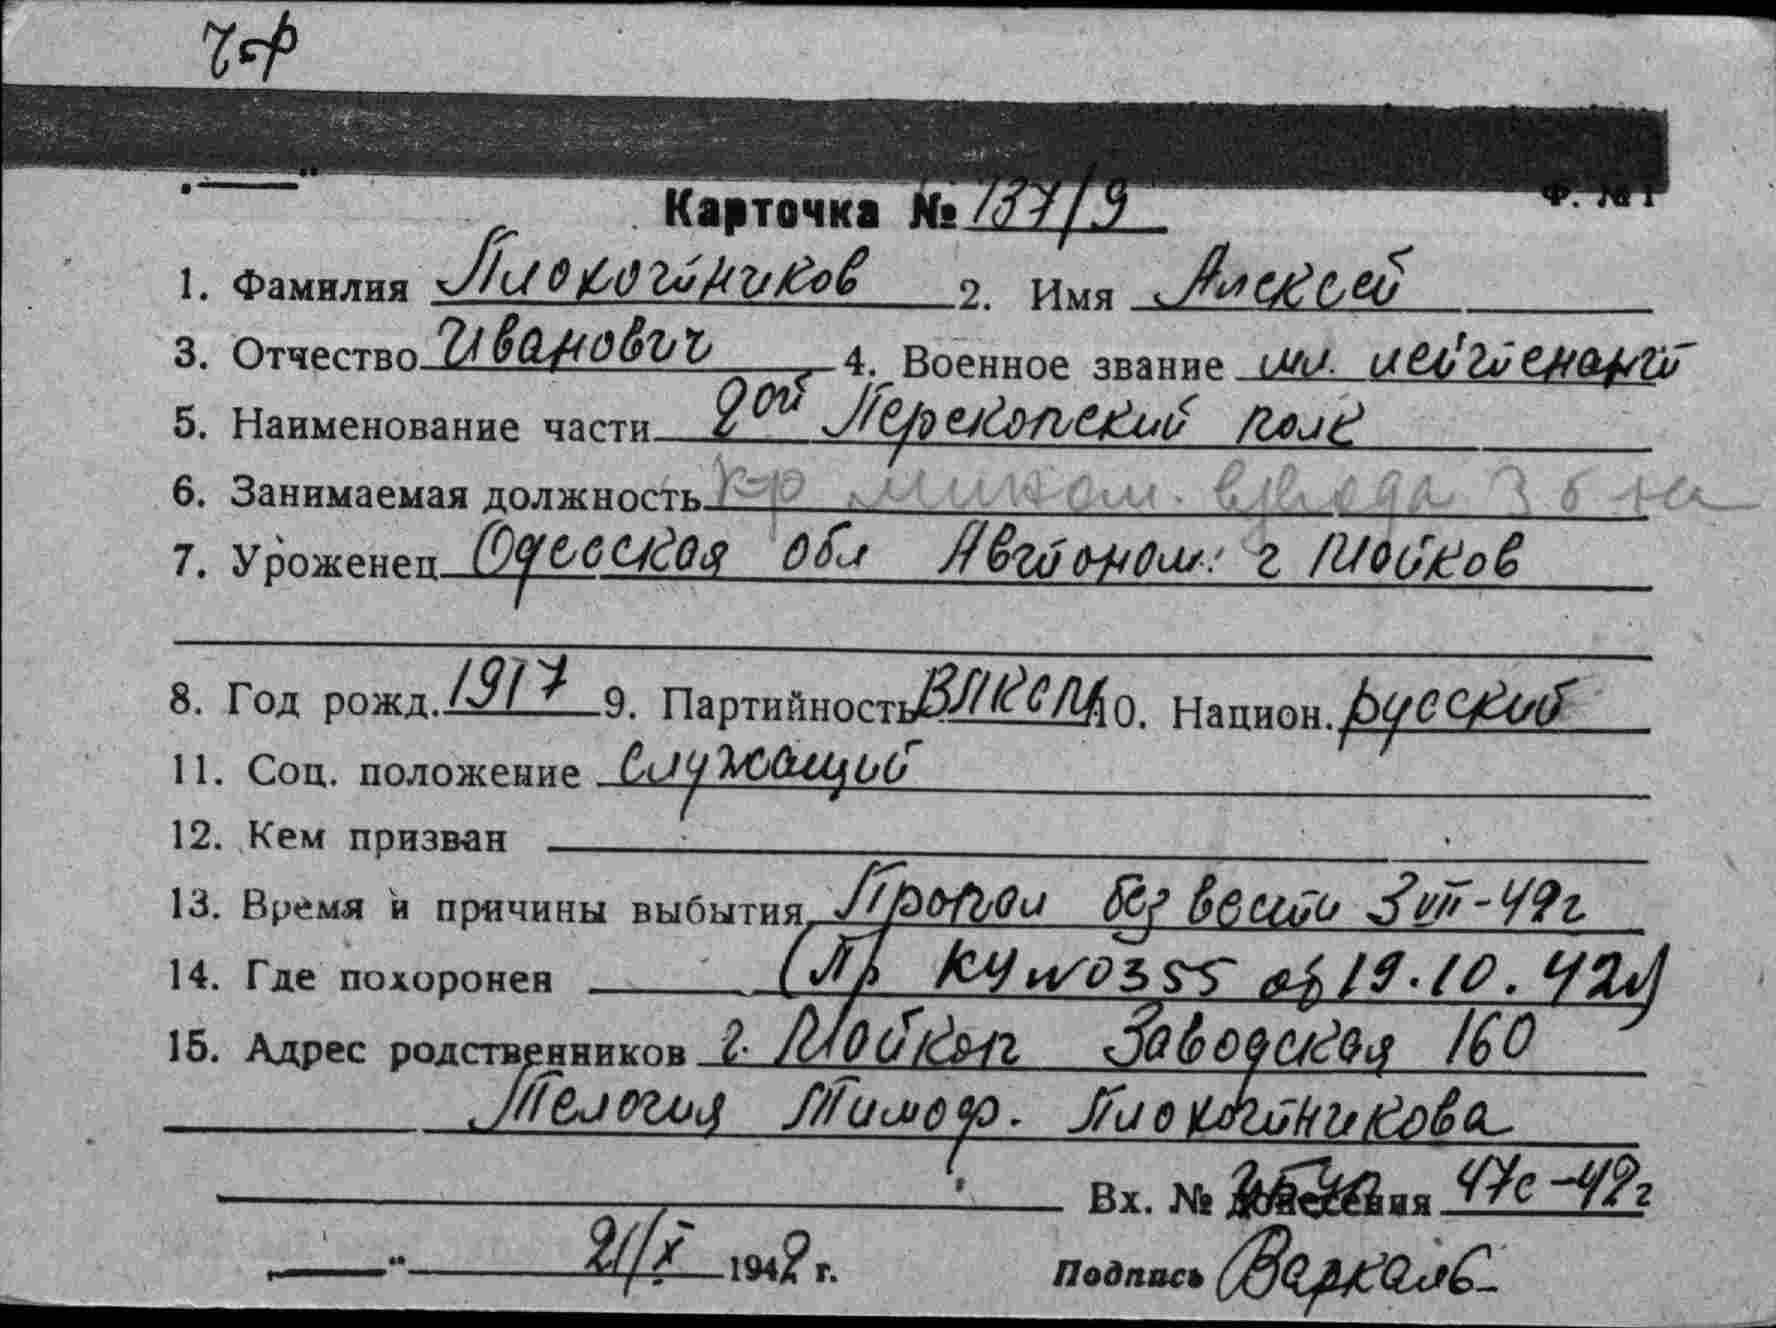 Ф. № 1
Карточка № 137/9
1. Фамилия Плохотников 2. Имя Алексей
3. Отчество Иванович 4. Военное звание мл. лейтенант
5. Наименование части 2ой Перекопский полк
6. Занимаемая должность к-р мином. взвода 3 б-на
7. Уроженец Одесская обл Автоном. г Майков
8. Год рожд. 1917 9. Партийность ВЛКСМ 10. Национ. русский
11. Соц. положение Служащий
12. Кем призван
13. Время и причины выбытия Пропал без вести 3 VII-42г
14. Где похоронен (Пр КЧ №0355 от 19.10.42г)
15. Адрес родственников г. Майкоп Заводская 160
Тимоф. Плохотникова
Вх. № донесения 47с-42г
21/X 1942 г. Подпись